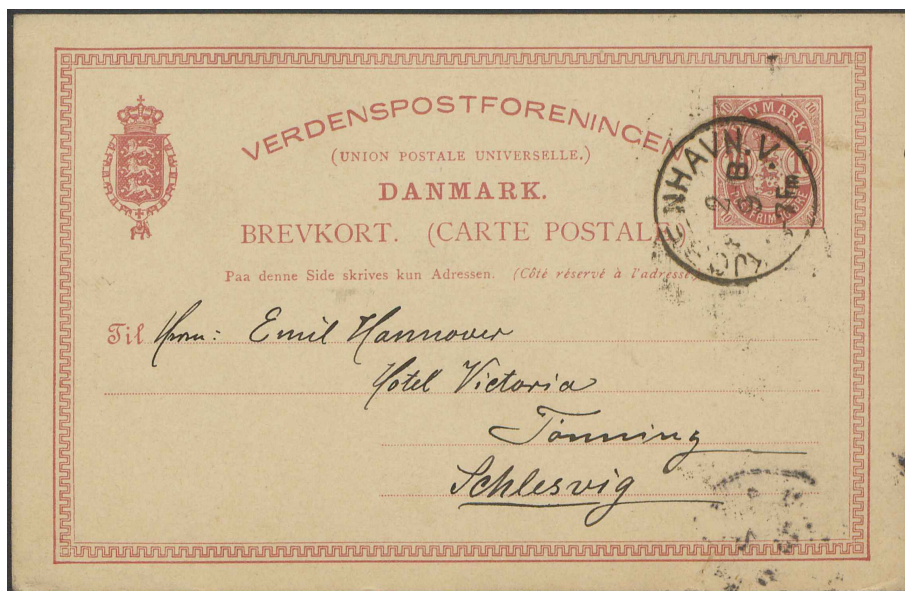 VERDENSPOSTFORENINGEN
(UNION POSTALE UNIVERSELLE.)
DANMARK.
BREVKORT. (CARTE POSTALE)
Paa denne Side skrives kun Adressen. (Côté réservé à l'adresse
Til Herrn: Emil Hannover
Hotel Victoria
Tönning
Schlesvig